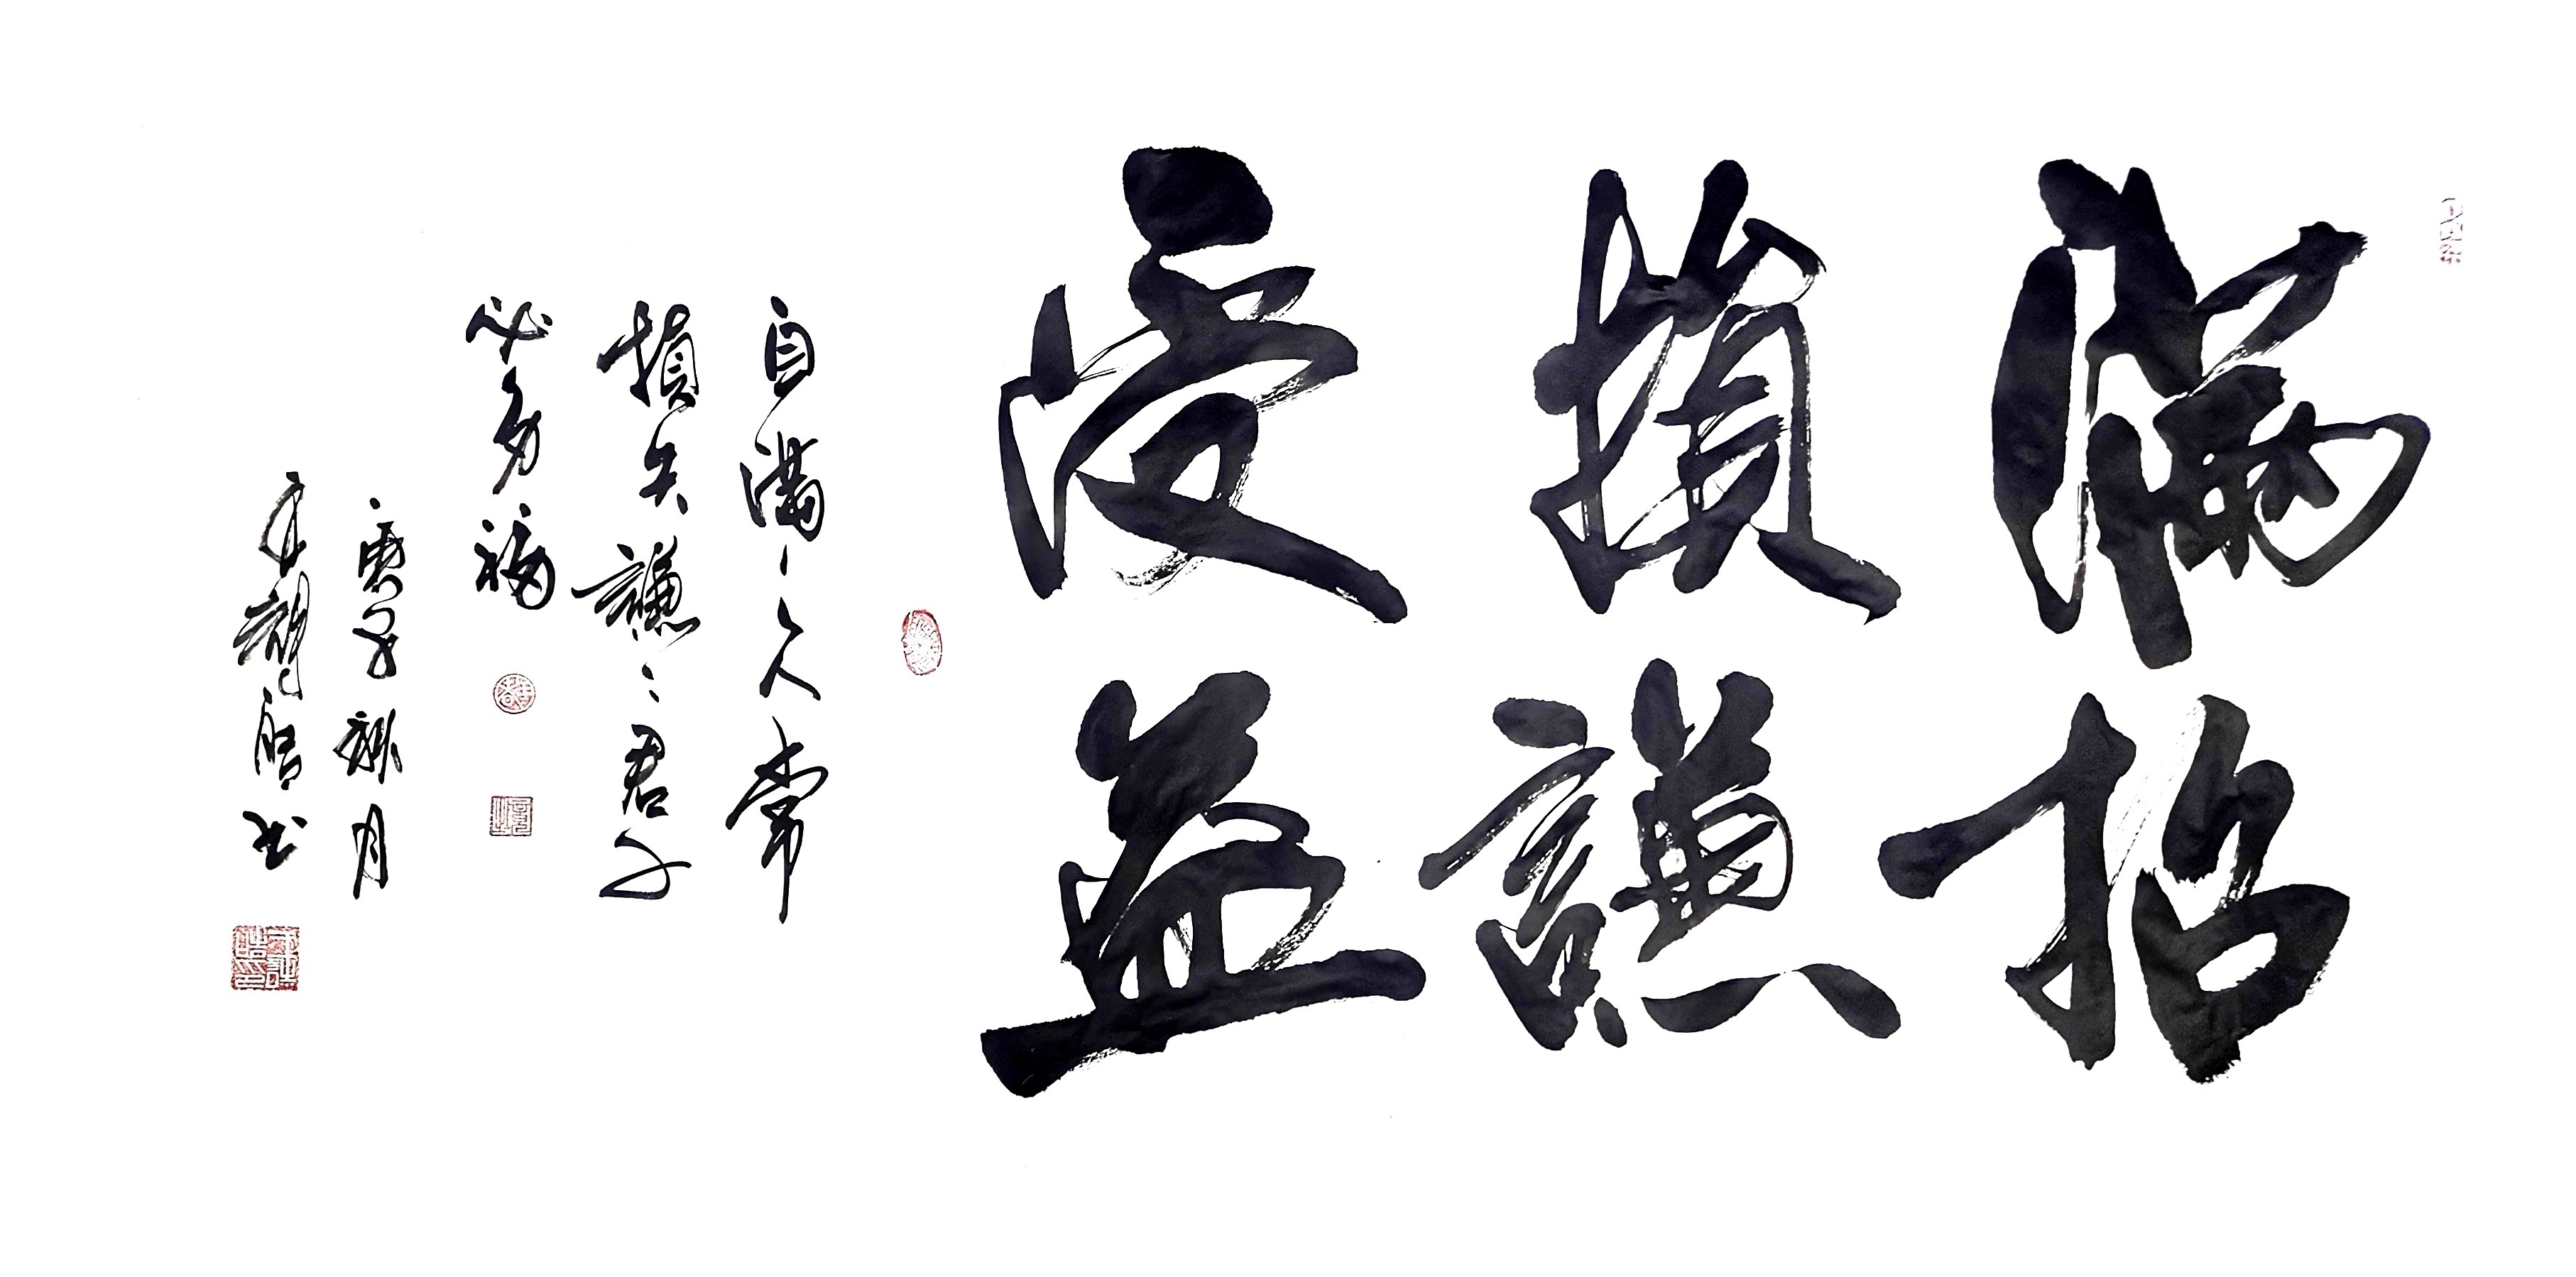 滿招
損謙
受益
自滿之人常
損失謙謙君子
必多福
庚子秋月
書